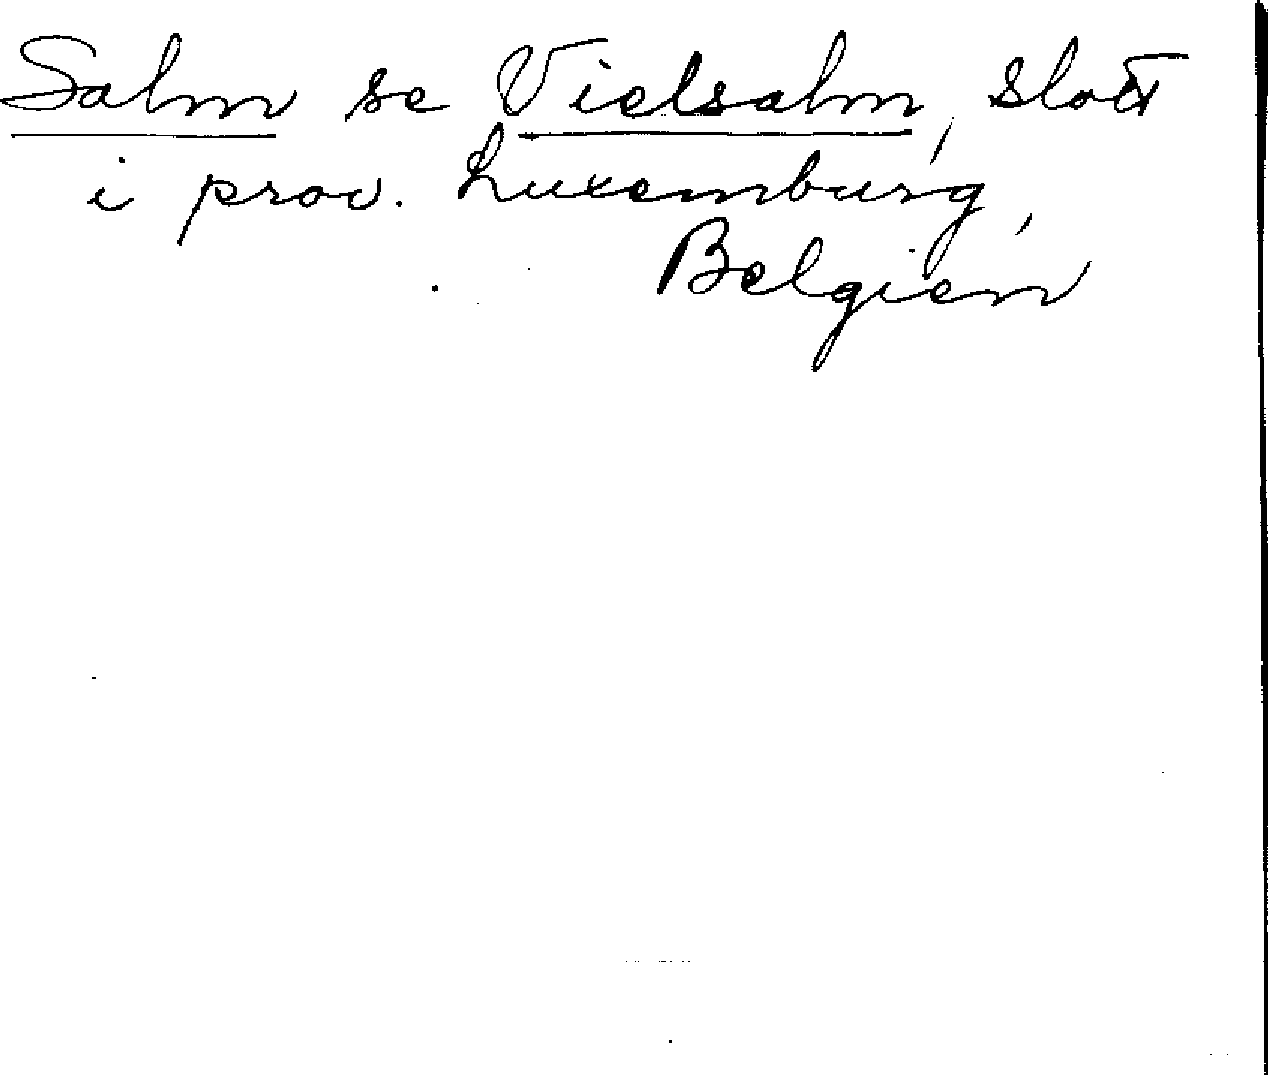 Salm se Vielsalm, slott
i prov. Luxemburg,
Belgien